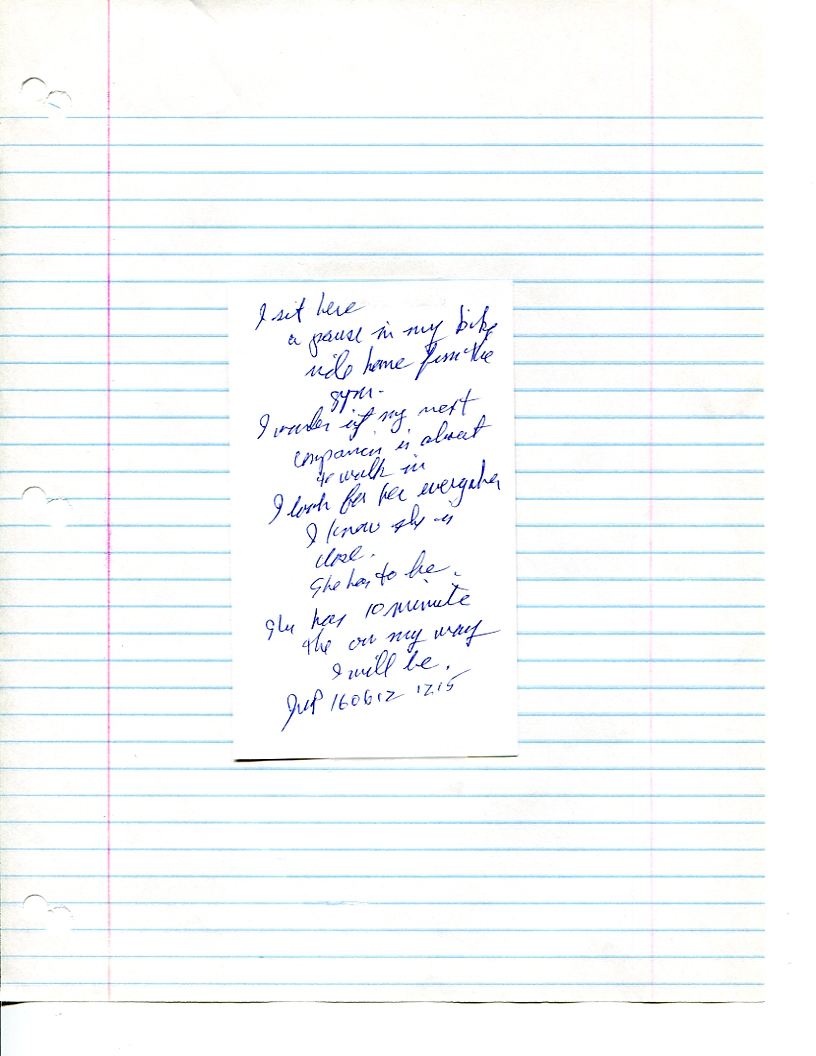 I sit here
a pause in my bike
ride home from the
gym.
I wonder if my next
companion is about
to walk in
I look for her everywhere
I know she is
close.
She has to be.
She has 10 minute
the on my way
I will be.
160612 1215